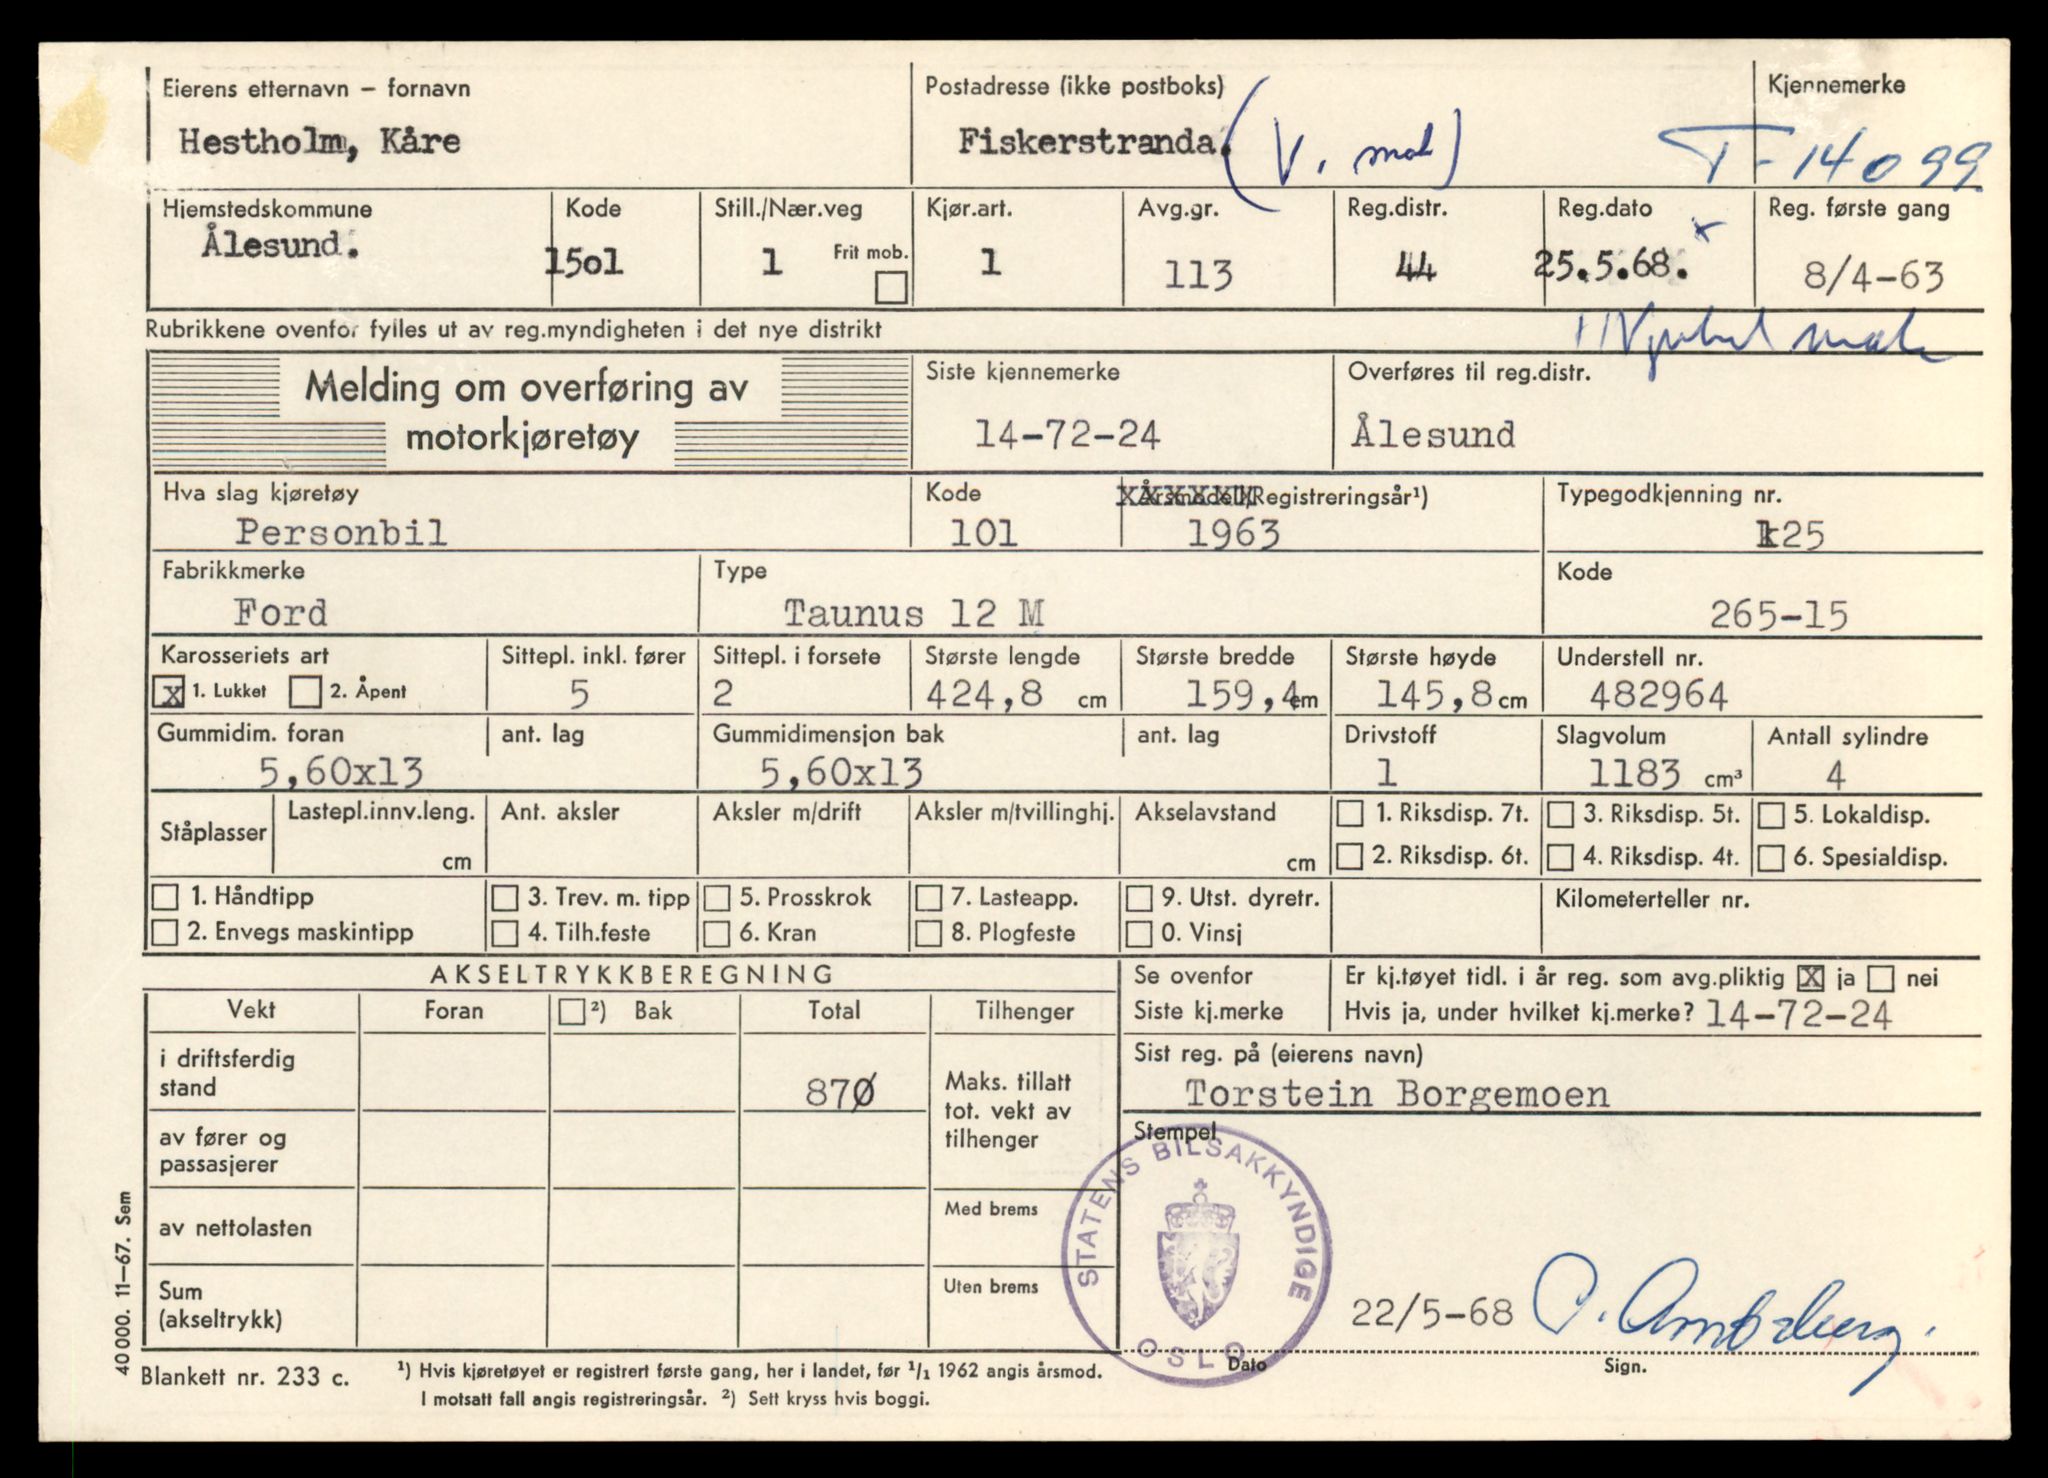 Eierens etternavn – fornavn
Hestholm, Kåre
Postadresse (ikke postboks)
Fiskerstranda. (V.
Kjennemerke
T-14099
Hjemstedskommune
Ålesund.
Kode
15o1
Still./Nær.veg
1
Frit mob.
Kjør.art.
1
Avg.gr.
113
Reg.distr.
44
Reg.dato
25.5.68.
Reg. første gang
8/4-63
Rubrikkene ovenfor fylles ut av reg.myndigheten i det nye distrikt
Melding om overføring av
motorkjøretøy
Siste kjennemerke
14-72-24
Overføres til reg.distr.
Ålesund
Hva slag kjøretøy
Personbil
Kode
101
Årsmodell/Registreringsår¹)
1963
Typegodkjenning nr.
k25
Fabrikkmerke
Ford
Type
Taunus 12 M
Kode
265-15
Karosseriets art
x 1. Lukket 2. Åpent
Sittepl. inkl. fører
5
Sittepl. i forsete
2
Største lengde
424,8 cm
Største bredde
159,4cm
Største høyde
145,8cm
Understell nr.
482964
Gummidim. foran
5,60x13
ant. lag
Gummidimensjon bak
5,60x13
ant. lag
Drivstoff
1
Slagvolum
1183 cm³
Antall sylindre
4
Ståplasser
Lastepl.innv.leng.
cm
Ant. aksler
Aksler m/drift
Aksler m/tvillinghj.
Akselavstand
cm
1. Riksdisp. 7t. 3. Riksdisp. 5t. 5. Lokaldisp.
2. Riksdisp. 6t. 4. Riksdisp. 4t. 6. Spesialdisp.
1. Håndtipp 3. Trev. m. tipp 5. Prosskrok 7. Lasteapp. 9. Utst. dyretr.
2. Envegs maskintipp 4. Tilh.feste 6. Kran 8. Plogfeste 0. Vinsj
Kilometerteller nr.
AKSELTRYKKBEREGNING
Vekt Foran ²) Bak Total Tilhenger
i driftsferdig
stand
870
av fører og
passasjerer
av nettolasten
Sum
(akseltrykk)
Maks. tillatt
tot. vekt av
tilhenger
Med brems
Uten brems
Se ovenfor
Siste kj.merke
Er kj.tøyet tidl. i år reg. som avg.pliktig X ja nei
Hvis ja, under hvilket kj.merke? 14-72-24
Sist reg. på (eierens navn)
Torstein Borgemoen
Stempel
STATENS BILSAKKYNDIGE
OSLO
22/5-68
Dato
Sign.
40 000. 11–67. Sem
Blankett nr. 233 c.
¹) Hvis kjøretøyet er registrert første gang, her i landet, før ¹/₁ 1962 angis årsmod.
I motsatt fall angis registreringsår. ²) Sett kryss hvis boggi.